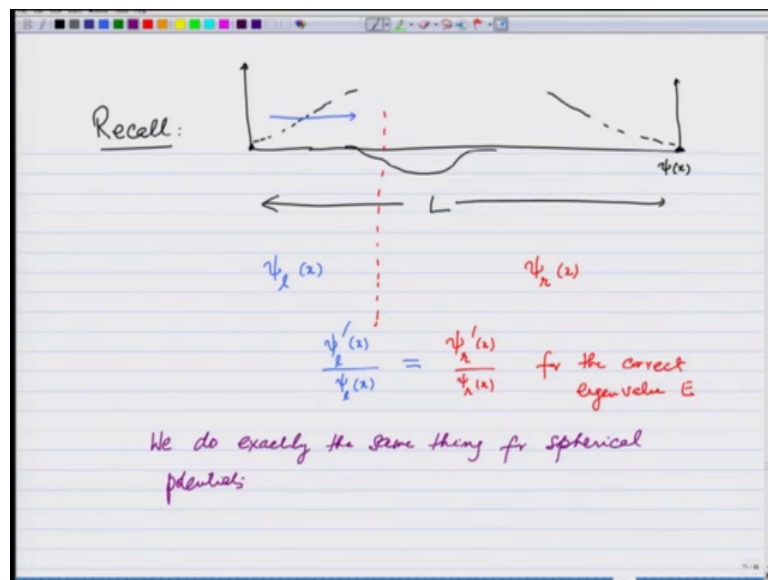 Recall:
ψ(x)
L
ψ_l(x) ψ_r(x)
ψ_l'(x)/ψ_l(x) = ψ_r'(x)/ψ_r(x) for the correct
eigenvalue E
We do exactly the same thing for spherical
potentials